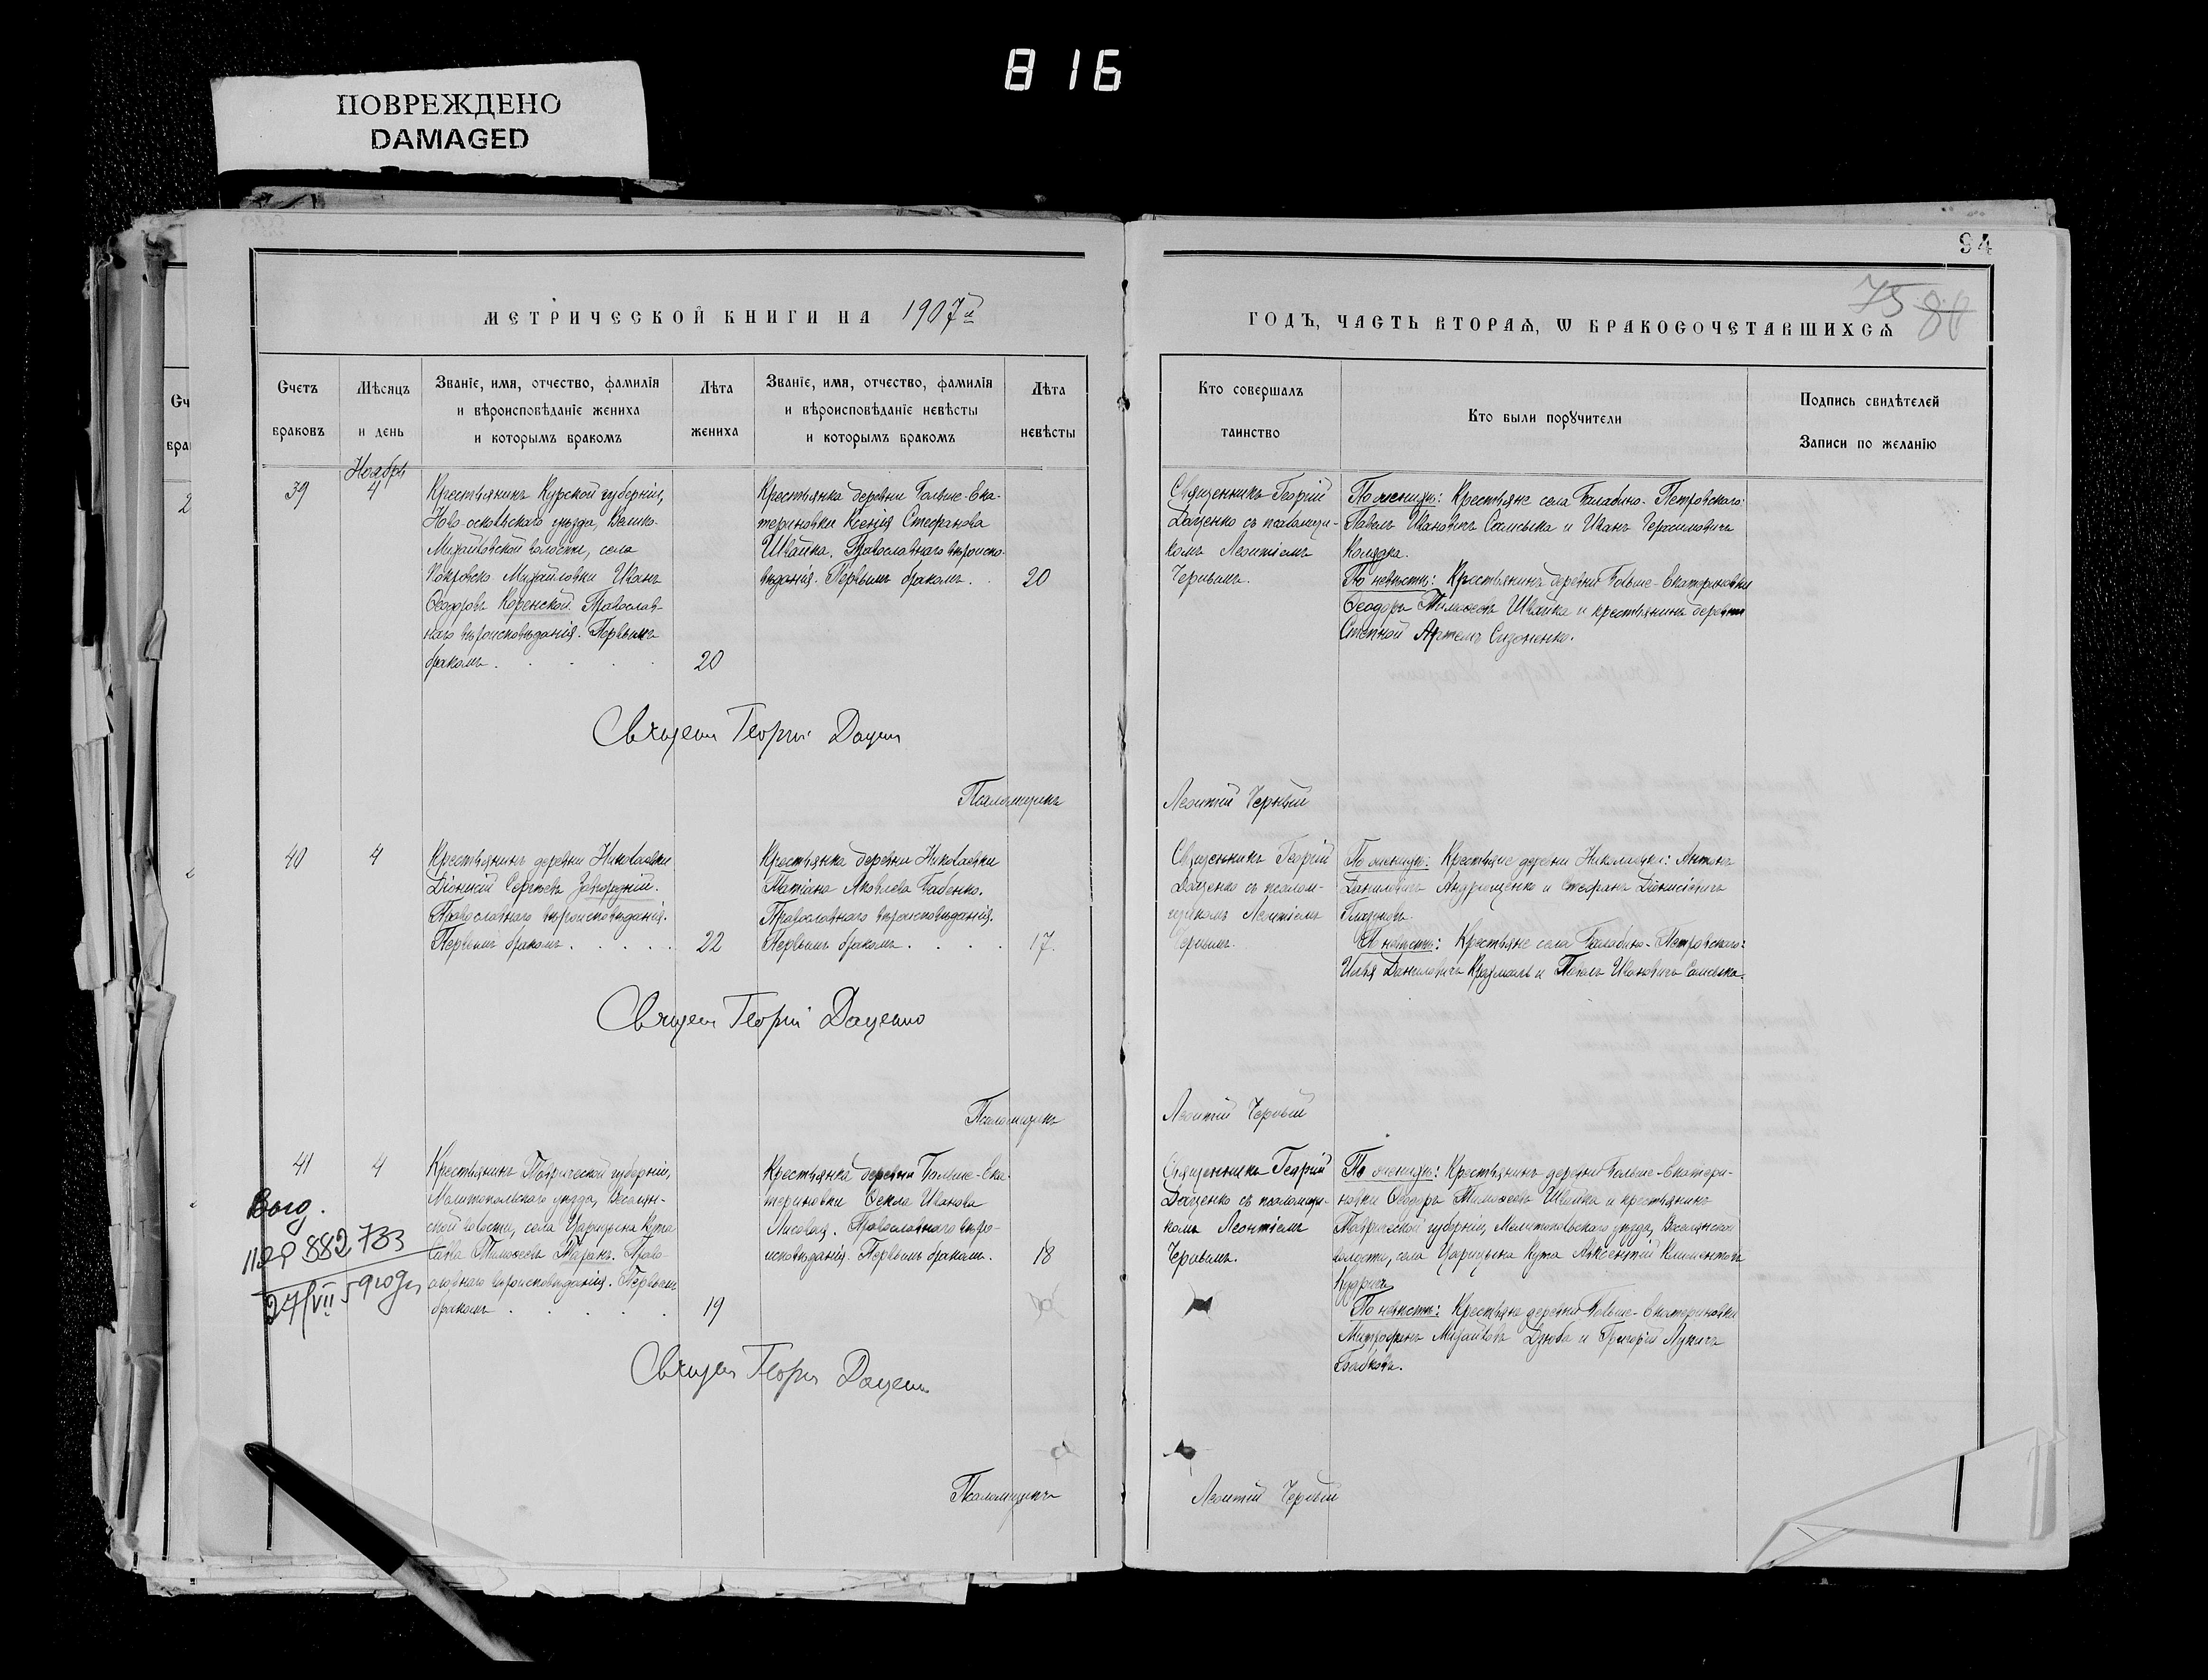 816
ПОВРЕЖДЕНО
DAMAGED
94
75 80
МЕТРИЧЕСКОЙ КНИГИ НА 1907й
ГОДЪ, ЧАСТЬ ВТОРАЯ, Ѡ БРАКОСОЧЕТАВШИХСЯ
Счетъ
браковъ
Мѣсяцъ
и день
Званіе, имя, отчество, фамилія
и вѣроисповѣданіе жениха
и которымъ бракомъ
Лѣта
жениха
Званіе, имя, отчество, фамилія
и вѣроисповѣданіе невѣсты
и которымъ бракомъ
Лѣта
невѣсты
Кто совершалъ
таинство
Кто были порꙋчители
Подпись свидѣтелей
Записи по желанію
Ноябрь
39
4
Крестьянинъ Курской губерніи,
Ново-оскольскаго уѣзда, Велико-
Михайловской волости, села
Покровско Михайловки Иванъ
Ѳеодоровъ Коренской. Православ-
наго вѣроисповѣданія. Первымъ
бракомъ.
20
Крестьянка деревни Больше-Ека-
териновки Ксенія Стефанова
Швайка. Православнаго вѣроиспо-
вѣданія. Первымъ бракомъ.
20
Священникъ Георгій
Даценко съ псаломщи-
комъ Леонтіемъ
Чернымъ.
По женихѣ: Крестьяне села Балабино-Петровскаго:
Павелъ Ивановичъ Самсыка и Иванъ Герасимовичъ
Колядка.
По невѣстѣ: Крестьянинъ деревни Больше-Екатериновки
Ѳеодоръ Тимоѳеевъ Швайка и крестьянинъ деревни
Степной Артемъ Сидоненко.
Священ Георгій Даценко
Псаломщикъ
Леонтій Черный
40
4
Крестьянинъ деревни Николаевки
Діонисій Сергѣевъ Завгородній.
Православнаго вѣроисповѣданія.
Первымъ бракомъ.
22
Крестьянка деревни Николаевки
Татіана Яковлева Бабенко.
Православнаго вѣроисповѣданія.
Первымъ бракомъ.
17.
Священникъ Георгій
Даценко съ псалом-
щикомъ Леонтіемъ
Чернымъ.
По женихѣ: Крестьяне деревни Николаевки: Антонъ
Даниловичъ Андрющенко и Стефанъ Діонисіевичъ
Глазуновъ.
По невѣстѣ: Крестьяне села Балабино-Петровскаго:
Илья Даниловичъ и Павелъ Ивановичъ Самсыка.
Священ Георгій Даценко
Псаломщикъ
Леонтій Черный
41
4
Выд.
882 733
27/VII 59 году
Крестьянинъ Таврической губерніи,
Мелитопольскаго уѣзда, Веселян-
ской волости, села Царицына Кута
Савва Тимоѳеевъ Таранъ. Право-
славнаго вѣроисповѣданія. Первымъ
бракомъ.
19
Крестьянка деревни Больше-Ека-
териновки Ѳекла Иванова
Лисовая. Православнаго вѣро-
исповѣданія. Первымъ бракомъ.
18
Священникъ Георгій
Даценко съ псаломщи-
комъ Леонтіемъ
Чернымъ.
По женихѣ: Крестьянинъ деревни Больше-Екатери-
новки Ѳеодоръ Тимоѳеевъ Швайка и крестьянинъ
Таврической губерніи, Мелитопольскаго уѣзда, Веселянской
волости, села Царицына Кута Авксентій Климентовъ
Кудричъ
По невѣстѣ: Крестьяне деревни Больше-Екатериновки
Митрофанъ Михайловъ Дзюба и Григорій Лукичъ
Священ Георгій Даценко
Псаломщикъ
Леонтій Черный